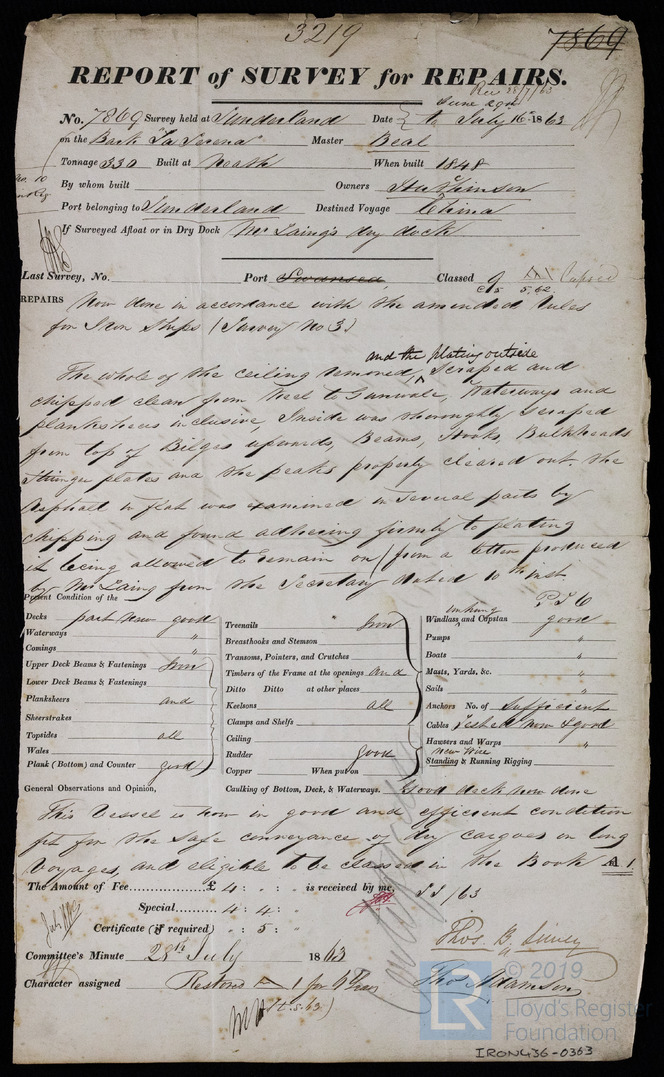 3219
7869
REPORT of SURVEY for REPAIRS.
Rec 28/7/63
No. 7869 Survey held at Sunderland Date June 29th to July 16th 1863
on the Bark "La Serena" Master Beal
Tonnage 330 Built at Neath When built 1848
By whom built Owners Hutchinson
Port belonging to Sunderland Destined Voyage China
If Surveyed Afloat or in Dry Dock Mr Laing's dry dock
Last Survey, No. Port Swansea, Classed 9 A1 Lapsed
5.62
REPAIRS Now done in accordance with the amended rules
for Iron Ships (Survey No 3)
and the plating outside
The whole of the ceiling removed, scraped and
chipped clean from keel to Gunwale, Waterways and
planksheers inclusive, Inside was thoroughly scraped
from top of Bilges upwards, Beams, Hooks, Bulkheads
Stringer plates and the peaks properly cleared out. The
Asphalt in flat was examined in several parts by
chipping and found adhering firmly to plating
it being allowed to remain on (from a letter produced
by Mr Laing from the Secretary dated 10th inst
Present Condition of the
Decks part new good
Waterways "
Comings "
Upper Deck Beams & Fastenings Iron
Lower Deck Beams & Fastenings
Planksheers and
Sheerstrakes
Topsides all
Wales
Plank (Bottom) and Counter good
Treenails " Iron
Breasthooks and Stemson
Transoms, Pointers, and Crutches
Timbers of the Frame at the openings and
Ditto Ditto at other places
Keelsons all
Clamps and Shelfs
Ceiling
Rudder good
Copper When put on
Windlass and Capstan good
Pumps "
Boats "
Masts, Yards, &c. "
Sails "
Anchors No. of Sufficient
Cables Tested now & good
Hawsers and Warps "
New Wire
Standing & Running Rigging
General Observations and Opinion, Caulking of Bottom, Deck, & Waterways. Good deck now done
This Vessel is now in good and efficient condition
fit for the safe conveyance of dry cargoes on long
Voyages, and eligible to be classed in the Book A 1
The Amount of Fee............... £ 4 : . : is received by me,
Special........ 4 : 4 :
Certificate (if required) . : 5 :
Committee's Minute 28th July 1863
Character assigned Restored A 1 for 6 Years
Thos Adamson
(t.s. 63)
© 2019
Lloyd's Register
Foundation
LR
IRON436-0363